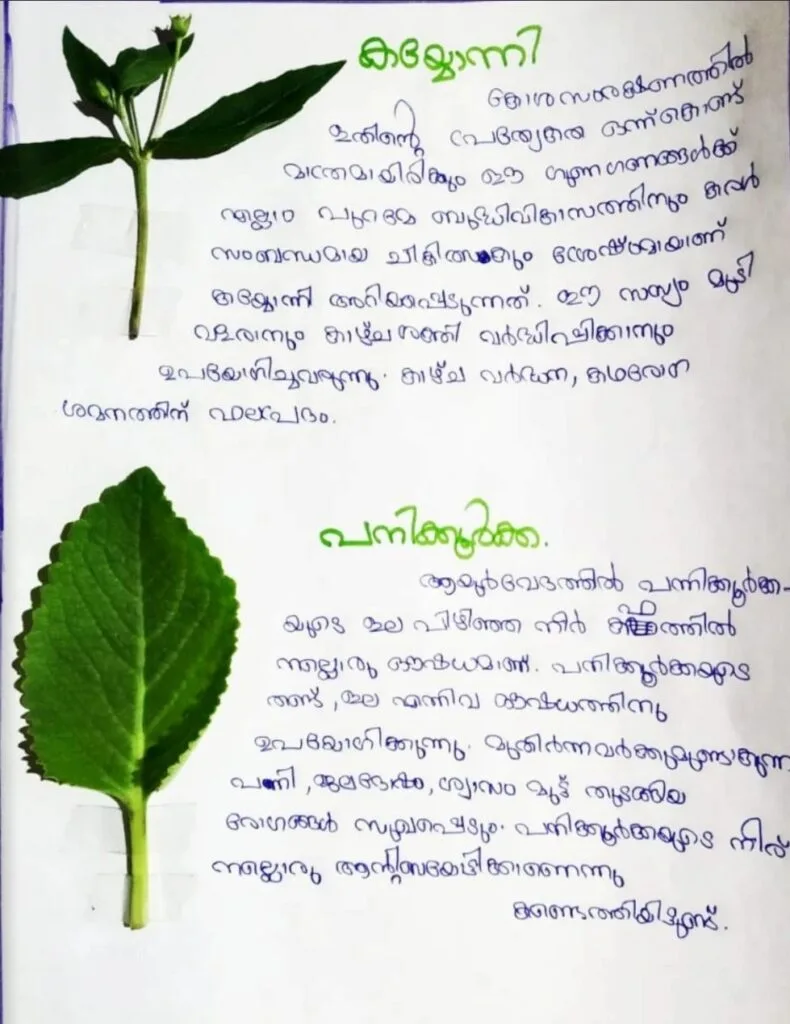 കയ്യോന്നി
കേശസംരക്ഷണത്തിൽ
ഇതിന്റെ പ്രത്യേകത ഒന്ന്കൊണ്ട്
മാത്രമായിരിക്കും ഈ ഗുണഗണങ്ങൾക്ക്
എല്ലാം പുറമേ ബുദ്ധിവികാസത്തിനും കരൾ
സംബന്ധമായ ചികിത്സക്കും ശ്രേഷ്ഠമായാണ്
കയ്യോന്നി അറിയപ്പെടുന്നത്. ഈ സസ്യം മുടി
വളരാനും കാഴ്ചശക്തി വർദ്ധിപ്പിക്കാനും
ഉപയോഗിച്ചുവരുന്നു. കാഴ്ച വർദ്ധന, കഫരോഗ
ശമനത്തിന് ഫലപ്രദം.
പനിക്കൂർക്ക.
ആയുർവേദത്തിൽ പന്നിക്കൂർക്ക-
യുടെ ഇല പിഴിഞ്ഞ നീർ കഫത്തിൽ
നല്ലൊരു ഔഷധമാണ്. പനിക്കൂർക്കയുടെ
തണ്ട്, ഇല എന്നിവ ഔഷധത്തിനു
ഉപയോഗിക്കുന്നു. മുതിർന്നവർക്കുമുണ്ടാകുന്ന
പനി, ജലദോഷം, ശ്വാസം മുട്ട് തുടങ്ങിയ
രോഗങ്ങൾ സുഖപ്പെടും. പനിക്കൂർക്കയുടെ നീര്
നല്ലൊരു ആന്റിബയോട്ടിക്കാണെന്നു
കണ്ടെത്തിയിട്ടുണ്ട്.